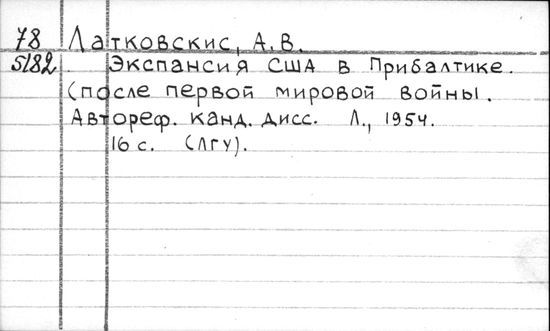 78 Латковскис, А.В.
5182 Экспансия США в Прибалтике.
(после первой мировой войны.
Автореф. канд. дисс. Л., 1954.
16 с. (ЛГУ).